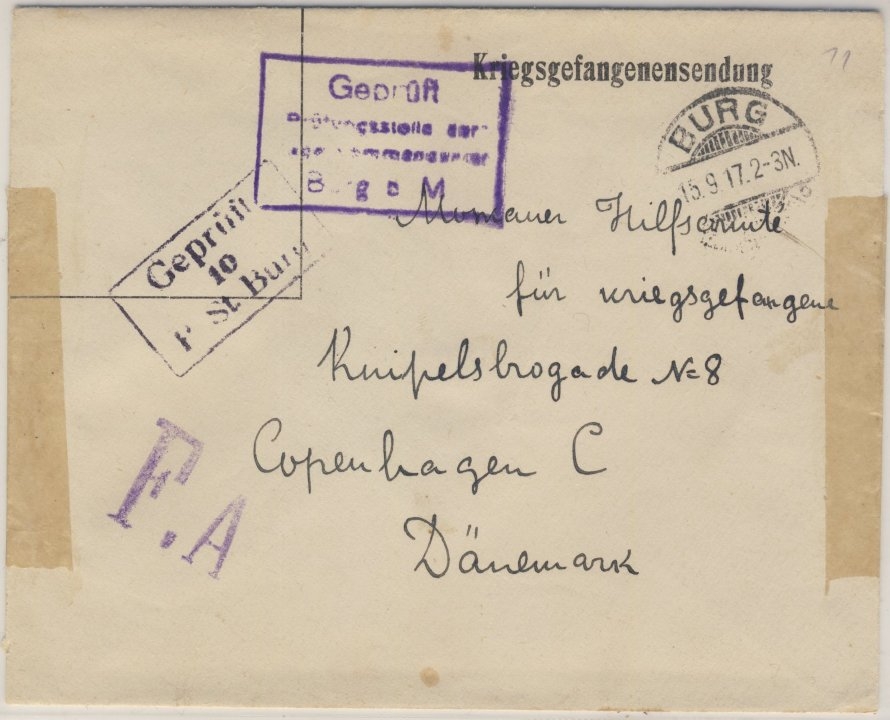 Kriegsgefangenensendung
11
Geprüft
Prüfungsstelle der
Burg b M
BURG
15.9.17.2-3N.
Geprüft
10
P. St. Burg
Hilfscomite
für kriegsgefangene
Knipelsbrogade № 8
Copenhagen C
Dänemark
F.A